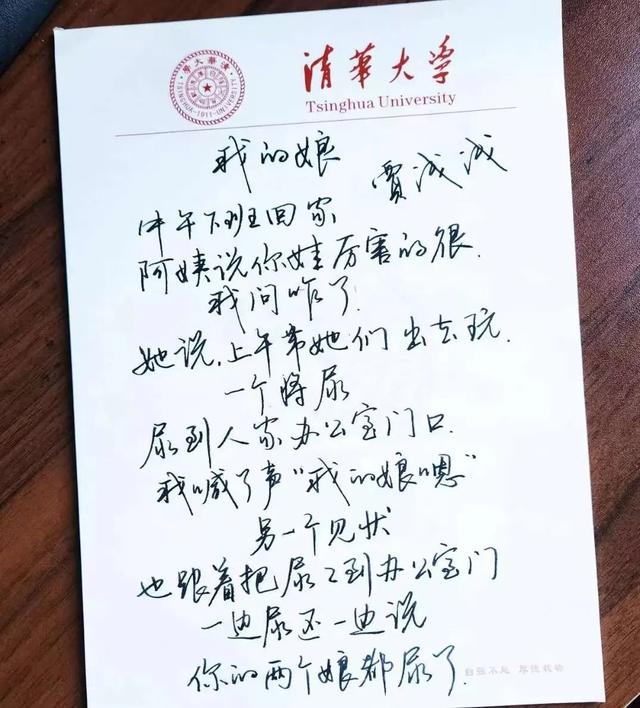 清華大學
TSINGHUA-1911-UNIVERSITY
清华大学
Tsinghua University
我的娘
贾浅浅
中午下班回家
阿姨说你娃厉害的很.
我问咋了.
她说,上午带她们出去玩.
一个将尿
尿到人家办公室门口.
我喊了声“我的娘嗯”
另一个见状
也跟着把尿尿到办公室门
一边尿还一边说
你的两个娘都尿了.
自强不息 厚德载物